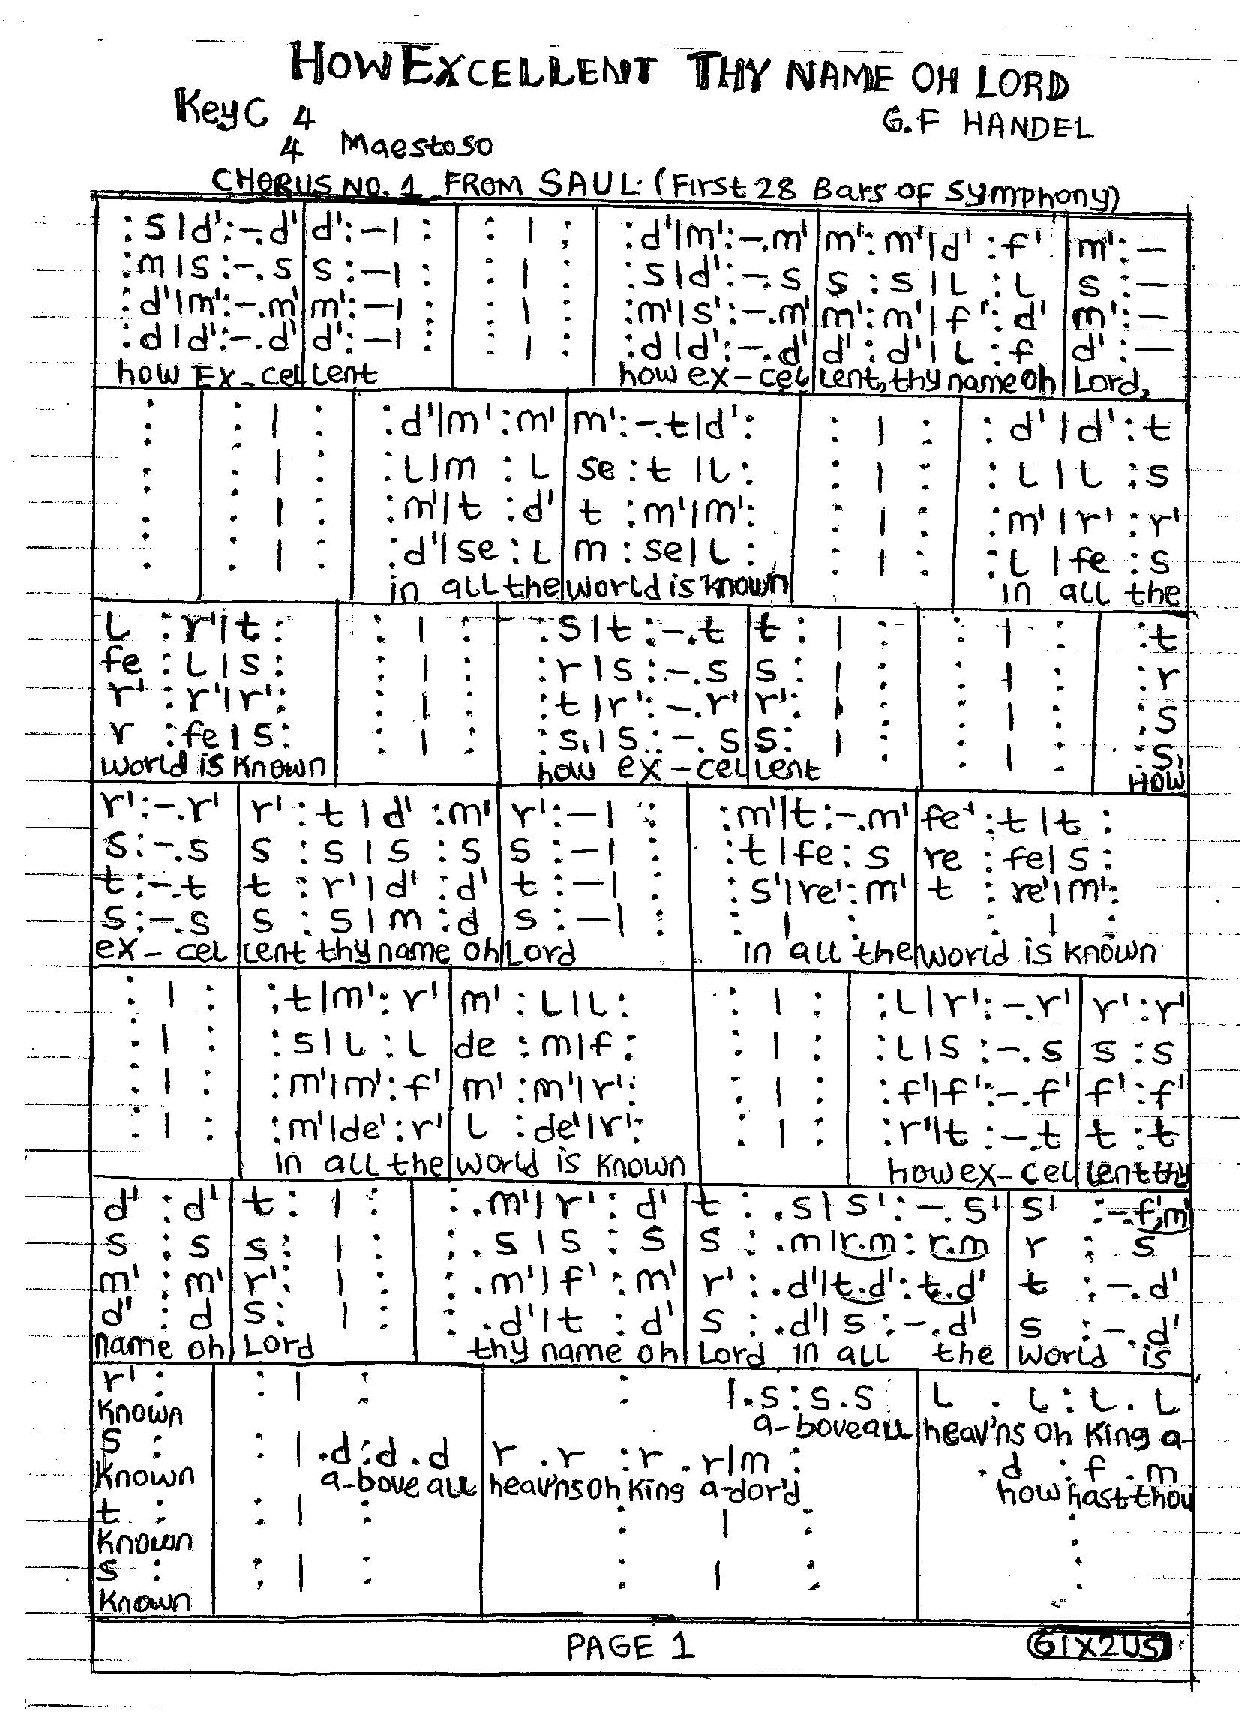 HOW EXCELLENT THY NAME OH LORD
Key C 4
4 Maestoso
G.F HANDEL
CHORUS NO. 1 FROM SAUL: (First 28 Bars of Symphony)
:s|d':-.d'|d':-|: : | : :d'|m':-.m'|m':m'|d':f'|m':-
:m|s:-.s|s:-|: : | : :s|d':-.s|s:s|L:L|s:-
:d'|m':-.m'|m':-|: : | : :m'|s':-.m'|m':m'|f':d'|m':-
:d|d':-.d'|d':-|: : | : :d|d':-.d'|d':d'|L:f|d':-
how Ex-cel lent how ex-cel lent, thy name oh Lord,
: : | : :d'|m':m'|m':-.t|d': : | : :d'|d':t
: : | : :L|m:L|se:t|L: : | : :L|L:s
: : | : :m'|t:d'|t:m'|m': : | : :m'|r':r'
: : | : :d'|se:L|m:se|L: : | : :L|fe:s
in all the world is known in all the
L:r'|t: : | : :s|t:-.t|t: | : : | : :t
fe:L|s: : | : :r|s:-.s|s: | : : | : :r
r':r'|r': : | : :t|r':-.r'|r': | : : | : :s
r:fe|s: : | : :s,|s:-.s|s: | : : | : :s,
world is known how ex-cel lent HOW
r':-.r'|r':t|d':m'|r':-|: :m'|t:-.m'|fe':t|t:
s:-.s|s:s|s:s|s:-|: :t|fe:s|re:fe|s:
t:-.t|t:r'|d':d'|t:-|: :s'|re':m'|t:re'|m':
s:-.s|s:s|m:d|s:-|: : | : : | :
ex-cel lent thy name oh Lord in all the world is known
: | : :t|m':r'|m':L|L: : | : :L|r':-.r'|r':r'
: | : :s|L:L|de:m|f: : | : :L|s:-.s|s:s
: | : :m'|m':f'|m':m'|r': : | : :f'|f':-.f'|f':f'
: | : :m'|de':r'|L:de'|r': : | : :r'|t:-.t|t:t
in all the world is known how ex-cel lent thy
d':d'|t: | : :.m'|r':d'|t:.s|s':-.s'|s':-.f',m'
s:s|s: | : :.s|s:s|s:.m|r.m:r.m|r:s
m':m'|r': | : :.m'|f':m'|r':.d'|t.d':t.d'|t:-.d'
d':d|s: | : :.d'|t:d'|s:.d'|s:-.d'|s:-.d'
name oh Lord thy name oh Lord in all the world is
r': : | : : |.s:s.s|L.L:L.L
known a-bove all heav'ns oh King a-
s: : |.d:d.d|r.r:r.r|m: .d:f.m
known a-bove all heav'ns oh King a-dor'd how hast thou
t: : | : : | : :
known
s: : | : : | : :
known
PAGE 1
GIX2US